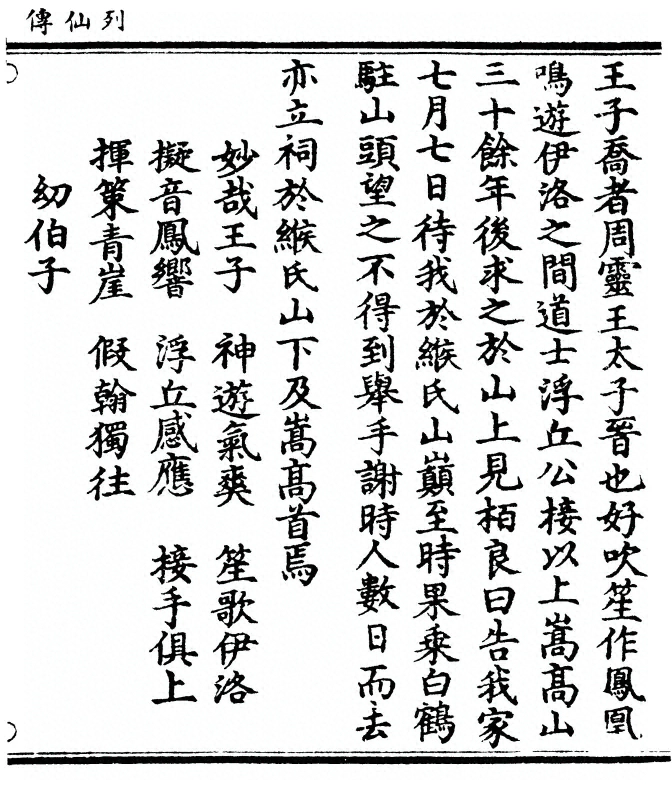 列仙傳
王子喬者周靈王太子晉也好吹笙作鳳凰
鳴遊伊洛之間道士浮丘公接以上嵩高山
三十餘年後求之於山上見栢良曰告我家
七月七日待我於緱氏山巔至時果乘白鶴
駐山頭望之不得到舉手謝時人數日而去
亦立祠於緱氏山下及嵩高首焉
妙哉王子 神遊氣爽 笙歌伊洛
擬音鳳響 浮丘感應 接手俱上
揮策青崖 假翰獨往
幼伯子